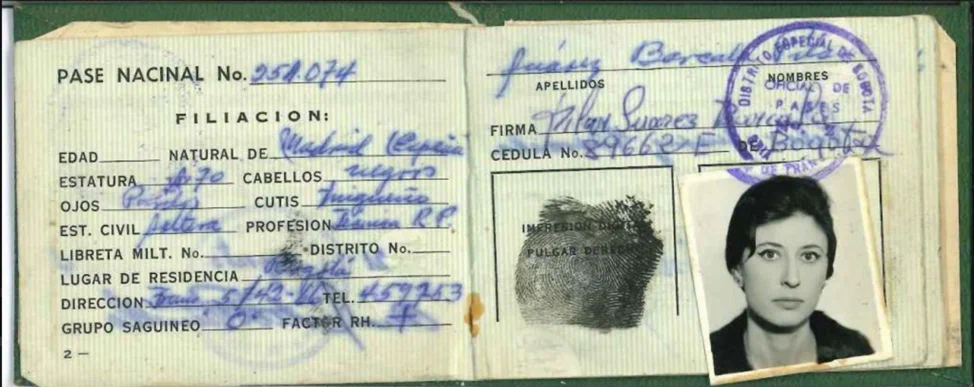 PASE NACINAL No. 251.074
FILIACION:
EDAD NATURAL DE Madrid
ESTATURA 1.70 CABELLOS negros
OJOS Pardos CUTIS trigueño
EST. CIVIL soltera PROFESION R.P.
LIBRETA MILT. No. DISTRITO No.
LUGAR DE RESIDENCIA Bogotá
DIRECCION TEL. 459753
GRUPO SAGUINEO O FACTOR RH. +
2 —
APELLIDOS NOMBRES
FIRMA Pilar Suarez
CEDULA No. 89662 E DE Bogotá
IMPRESION
PULGAR DERECHO
DISTRITO ESPECIAL DE BOGOTA
OFICIAL DE
PASES
DE TRAN